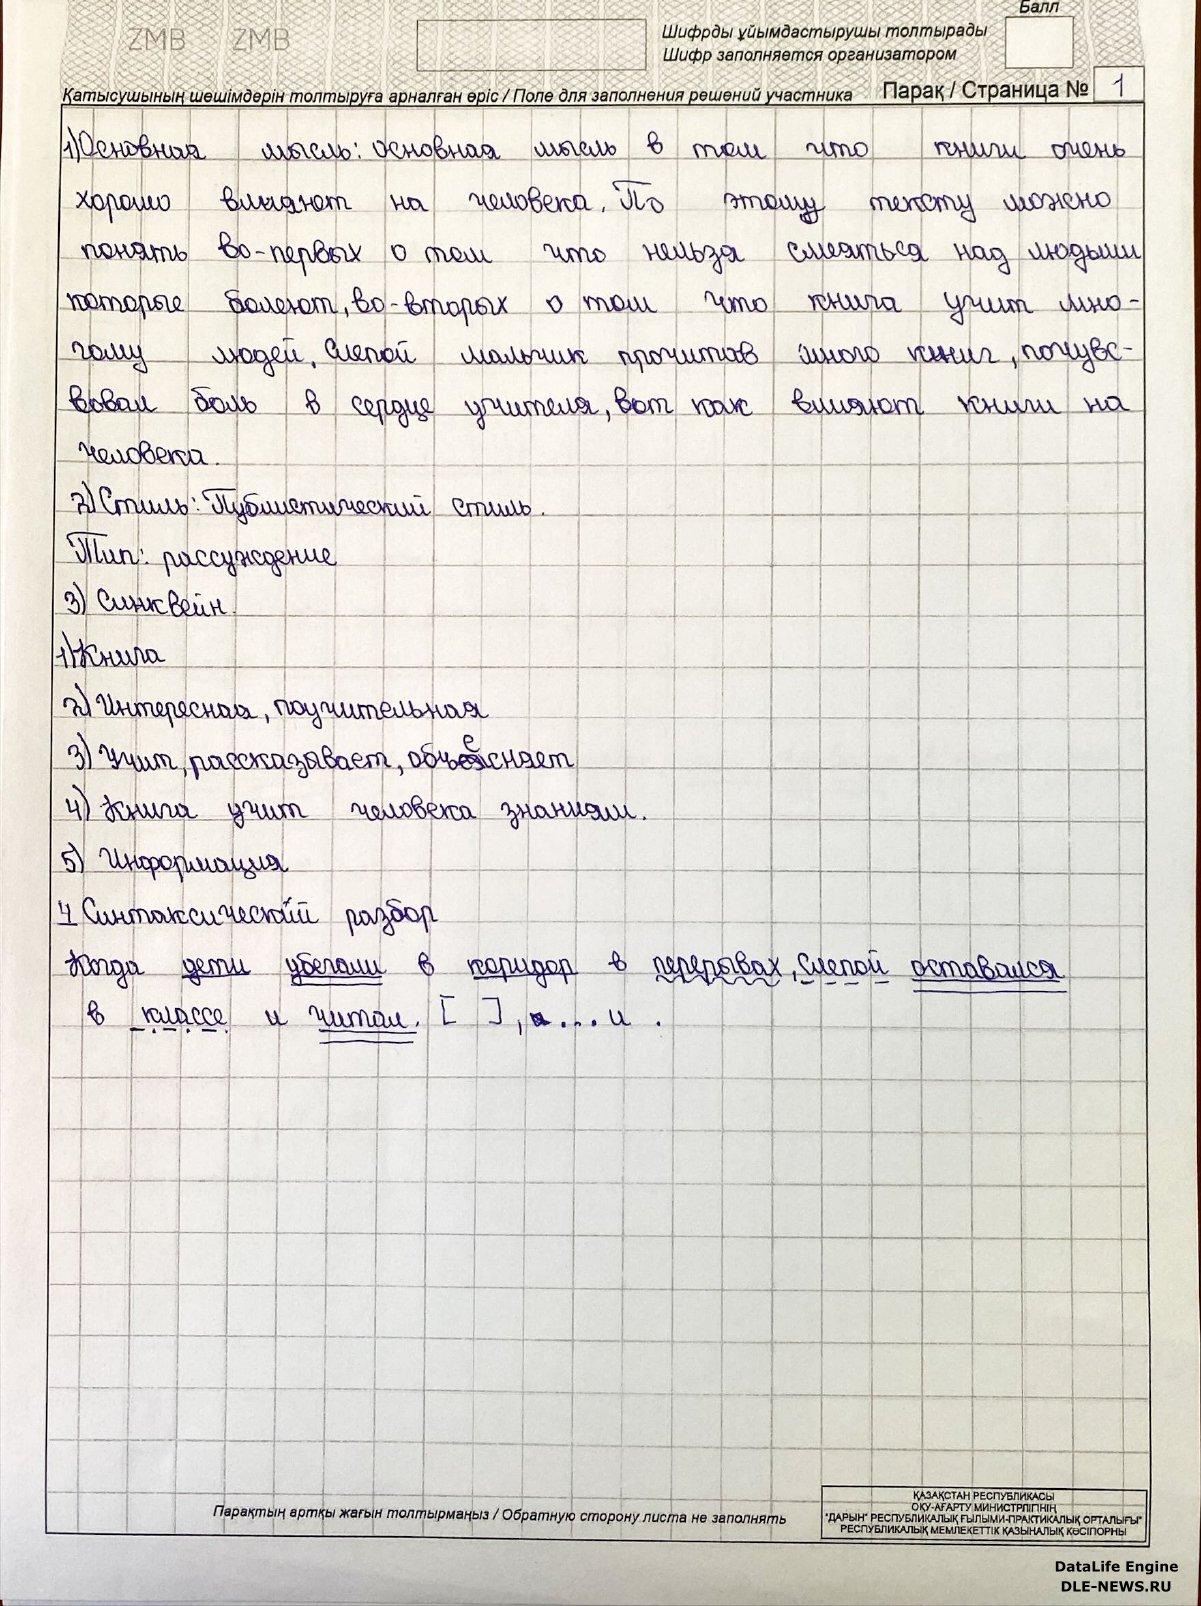 Балл
ZMB ZMB
Шифрды ұйымдастырушы толтырады
Шифр заполняется организатором
Қатысушының шешімдерін толтыруға арналған өріс / Поле для заполнения решений участника Парақ / Страница № 1
1) Основная мысль: основная мысль в том что книги очень
хорошо влияют на человека. По этому тексту можно
понять во-первых о том что нельзя смеяться над людьми
которые болеют, во-вторых о том что книга учит мно-
гому людей. Слепой мальчик прочитав много книг, почувс-
вовал боль в сердце учителя, вот как влияют книги на
человека.
2) Стиль: Публистический стиль.
Тип: рассуждение
3) Синквейн.
1) Книга
2) Интересная, поучительная
3) Учит, рассказывает, объесняет
4) Книга учит человека знаниям.
5) Информация
4 Синтаксический разбор
Когда дети убегали в коридор в перерывах, слепой оставался
в классе и читал. [ ], ... и .
Парақтың артқы жағын толтырмаңыз / Обратную сторону листа не заполнять
ҚАЗАҚСТАН РЕСПУБЛИКАСЫ
ОҚУ-АҒАРТУ МИНИСТРЛІГІНІҢ
"ДАРЫН" РЕСПУБЛИКАЛЫҚ ҒЫЛЫМИ-ПРАКТИКАЛЫҚ ОРТАЛЫҒЫ"
РЕСПУБЛИКАЛЫҚ МЕМЛЕКЕТТІК ҚАЗЫНАЛЫҚ КӘСІПОРНЫ
DataLife Engine
DLE-NEWS.RU